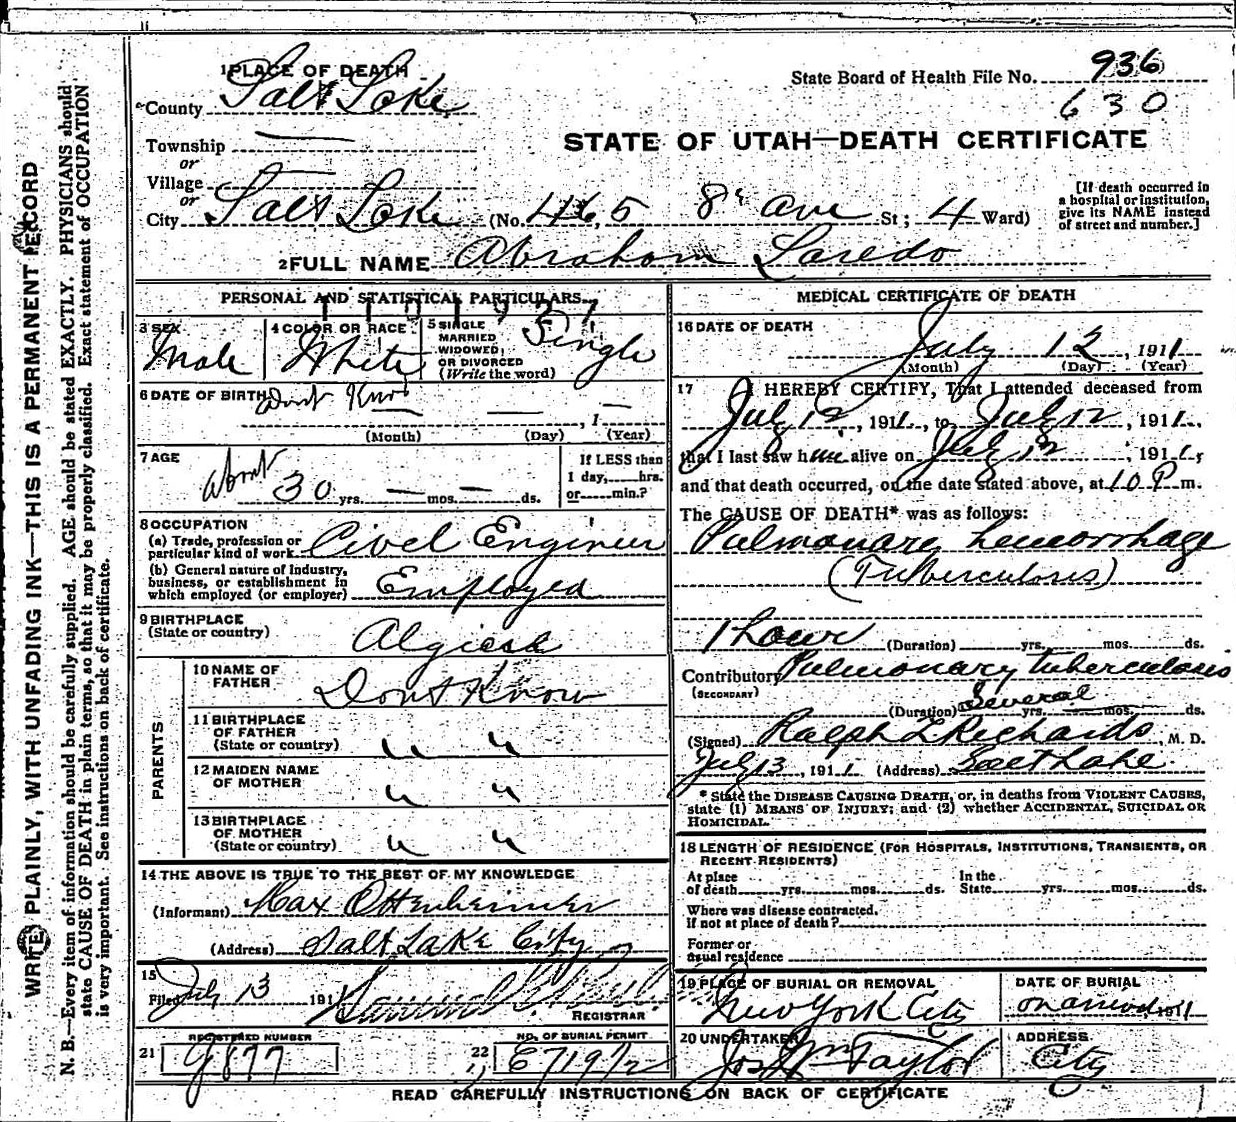 1 PLACE OF DEATH
County Salt Lake
State Board of Health File No. 936
630
STATE OF UTAH—DEATH CERTIFICATE
Township
or
Village
or
City Salt Lake (No. 465 8th ave St; 4 Ward)
[If death occurred in a hospital or institution, give its NAME instead of street and number.]
2 FULL NAME Abraham Laredo
PERSONAL AND STATISTICAL PARTICULARS
3 SEX Male
4 COLOR OR RACE White
5 SINGLE MARRIED WIDOWED, OR DIVORCED (Write the word) Single
6 DATE OF BIRTH Dont Know — — , 1 —
(Month) (Day) (Year)
7 AGE About 30 yrs. — mos. — ds.
If LESS than 1 day, hrs. or min.?
8 OCCUPATION
(a) Trade, profession or particular kind of work Civel Enginier
(b) General nature of industry, business, or establishment in which employed (or employer) Employed
9 BIRTHPLACE
(State or country)
PARENTS
10 NAME OF FATHER Dont Know
11 BIRTHPLACE OF FATHER (State or country) " "
12 MAIDEN NAME OF MOTHER " "
13 BIRTHPLACE OF MOTHER (State or country) " "
14 THE ABOVE IS TRUE TO THE BEST OF MY KNOWLEDGE
(Informant) Max Ottenheimer
(Address) Salt Lake City
15
Filed July 13 191
REGISTRAR
REGISTERED NUMBER
21 9877
NO. OF BURIAL PERMIT
22 E719½
MEDICAL CERTIFICATE OF DEATH
16 DATE OF DEATH
July 12, 1911
(Month) (Day) (Year)
17 I HEREBY CERTIFY, That I attended deceased from
July 12, 1911., to July 12, 1911.,
that I last saw him alive on July 12, 1911,
and that death occurred, on the date stated above, at 10 P m.
The CAUSE OF DEATH* was as follows:
Pulmonary hemorrhage
(Tuberculosis)
1 hour (Duration) yrs. mos. ds.
Contributory Pulmonary tuberculosis
(SECONDARY)
(Duration) Several yrs. mos. ds.
(Signed) Ralph L Richards, M. D.
July 13, 1911 (Address) Salt Lake
* State the DISEASE CAUSING DEATH, or, in deaths from VIOLENT CAUSES, state (1) MEANS OF INJURY; and (2) whether ACCIDENTAL, SUICIDAL OR HOMICIDAL.
18 LENGTH OF RESIDENCE (FOR HOSPITALS, INSTITUTIONS, TRANSIENTS, OR RECENT RESIDENTS)
At place of death yrs. mos. ds. In the State yrs. mos. ds.
Where was disease contracted, if not at place of death?
Former or usual residence
19 PLACE OF BURIAL OR REMOVAL
New York City
DATE OF BURIAL
on arrival 1911
20 UNDERTAKER
Jos Wm Taylor
ADDRESS
City
READ CAREFULLY INSTRUCTIONS ON BACK OF CERTIFICATE
WRITE PLAINLY, WITH UNFADING INK—THIS IS A PERMANENT RECORD
N. B.—Every item of information should be carefully supplied. AGE should be stated EXACTLY. PHYSICIANS should
state CAUSE OF DEATH in plain terms, so that it may be properly classified. Exact statement of OCCUPATION
is very important. See instructions on back of certificate.